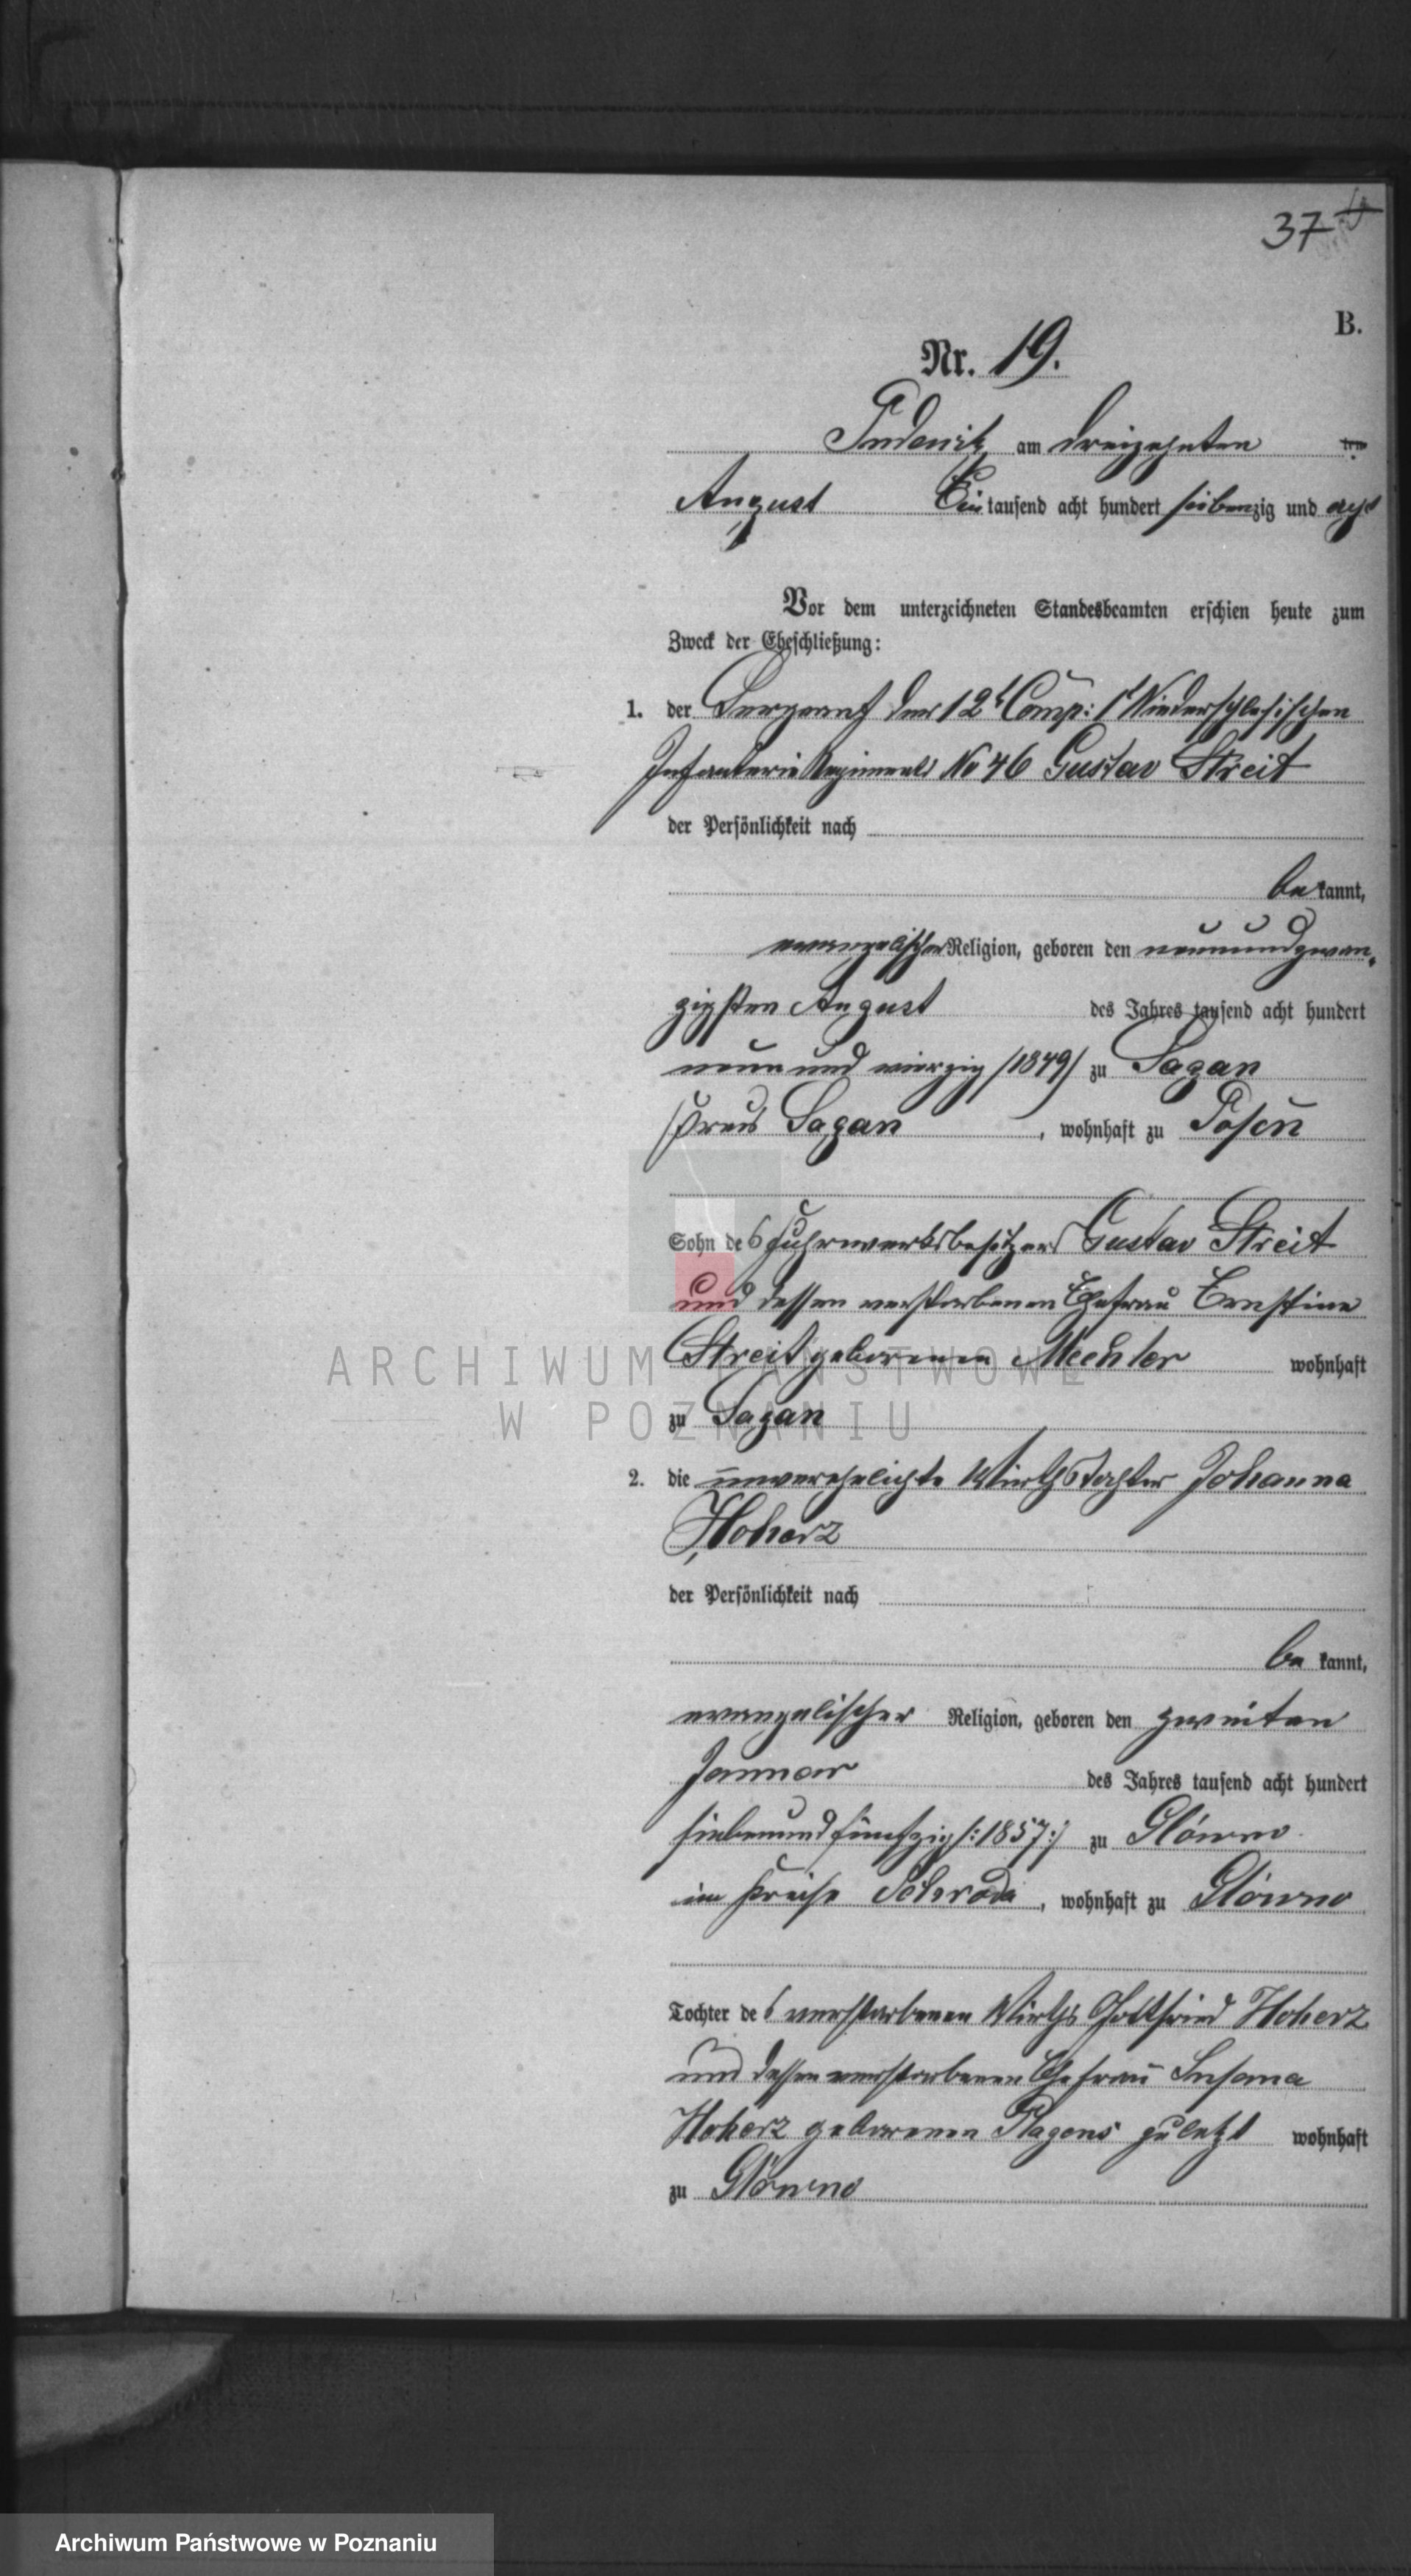 37
B.
Nr. 19.
Pudewitz am dreizehnten ten
August Ein tausend acht hundert siebenzig und acht
Vor dem unterzeichneten Standesbeamten erschien heute zum
Zweck der Eheschließung:
1. der Sergeant der 12t Comp: 1t Niederschlesischen
Infanterie Regiments No 46 Gustav Streit
der Persönlichkeit nach
be kannt,
evangelischer Religion, geboren den neunundzwan-
zigsten August des Jahres tausend acht hundert
neun und vierzig /1849/ zu Sagan
Kreis Sagan, wohnhaft zu Posen
Sohn des Fuhrwerksbesitzers Gustav Streit
und dessen verstorbenen Ehefrau Ernstine
Streit geborenen wohnhaft
zu Sagan
2. die unverehelichte Wirthstochter Johanna
Hoherz
der Persönlichkeit nach
be kannt,
evangelischer Religion, geboren den zweiten
Januar des Jahres tausend acht hundert
siebenundfünfzig /:1857:/ zu Glówno
im Kreise Schroda, wohnhaft zu Glówno
Tochter des verstorbenen Wirths Gottfried Hoherz
und dessen verstorbenen Ehefrau Susana
Hoherz geborenen Plagens zuletzt wohnhaft
zu Glówno
ARCHIWUM PAŃSTWOWE
W POZNANIU
Archiwum Państwowe w Poznaniu